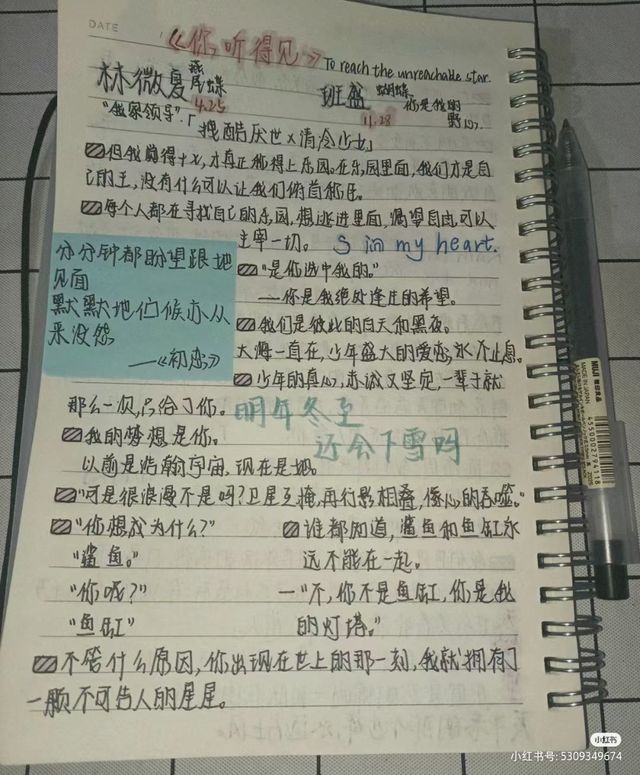 DATE
《你听得见》
To reach the unreachable star.
林微夏 燕尾蝶 班盛 蝴蝶 你是我的野心.
4.25 11.28
"我家领导".「拽酷厌世×清冷少女」
但我觉得十义,才真正能得上乐园。在乐园里面,我们才是自
己的王,没有什么可以让我们俯首称臣。
每个人都在寻找自己的乐园,想逃进里面,渴望自由,可以
主宰一切。 S in my heart.
分分钟都盼望跟她
见面
默默地伫候亦从
来没怨
——《初恋》
"是你选中我的。"
——你是我绝处逢生的希望。
我们是彼此的白天和黑夜。
大海一直在,少年盛大的爱恋永不止息。
少年的真心,赤诚又坚定,一辈子就
那么一次,只给了你。
明年冬至
还会下雪吗
我的梦想是你。
以前是浩瀚宇宙,现在是她。
"可是很浪漫不是吗?卫星互掩,再行影相叠,像心的吞噬。"
"你想成为什么?"
"鲨鱼。"
"你呢?"
"鱼缸"
谁都知道,鲨鱼和鱼缸永
远不能在一起。
一"不,你不是鱼缸,你是我
的灯塔。"
不管什么原因,你出现在世上的那一刻,我就拥有了
一颗不可告人的星星。
MUJI 無印良品
MADE IN JAPAN
4550002794118
小红书
小红书号: 5309349674